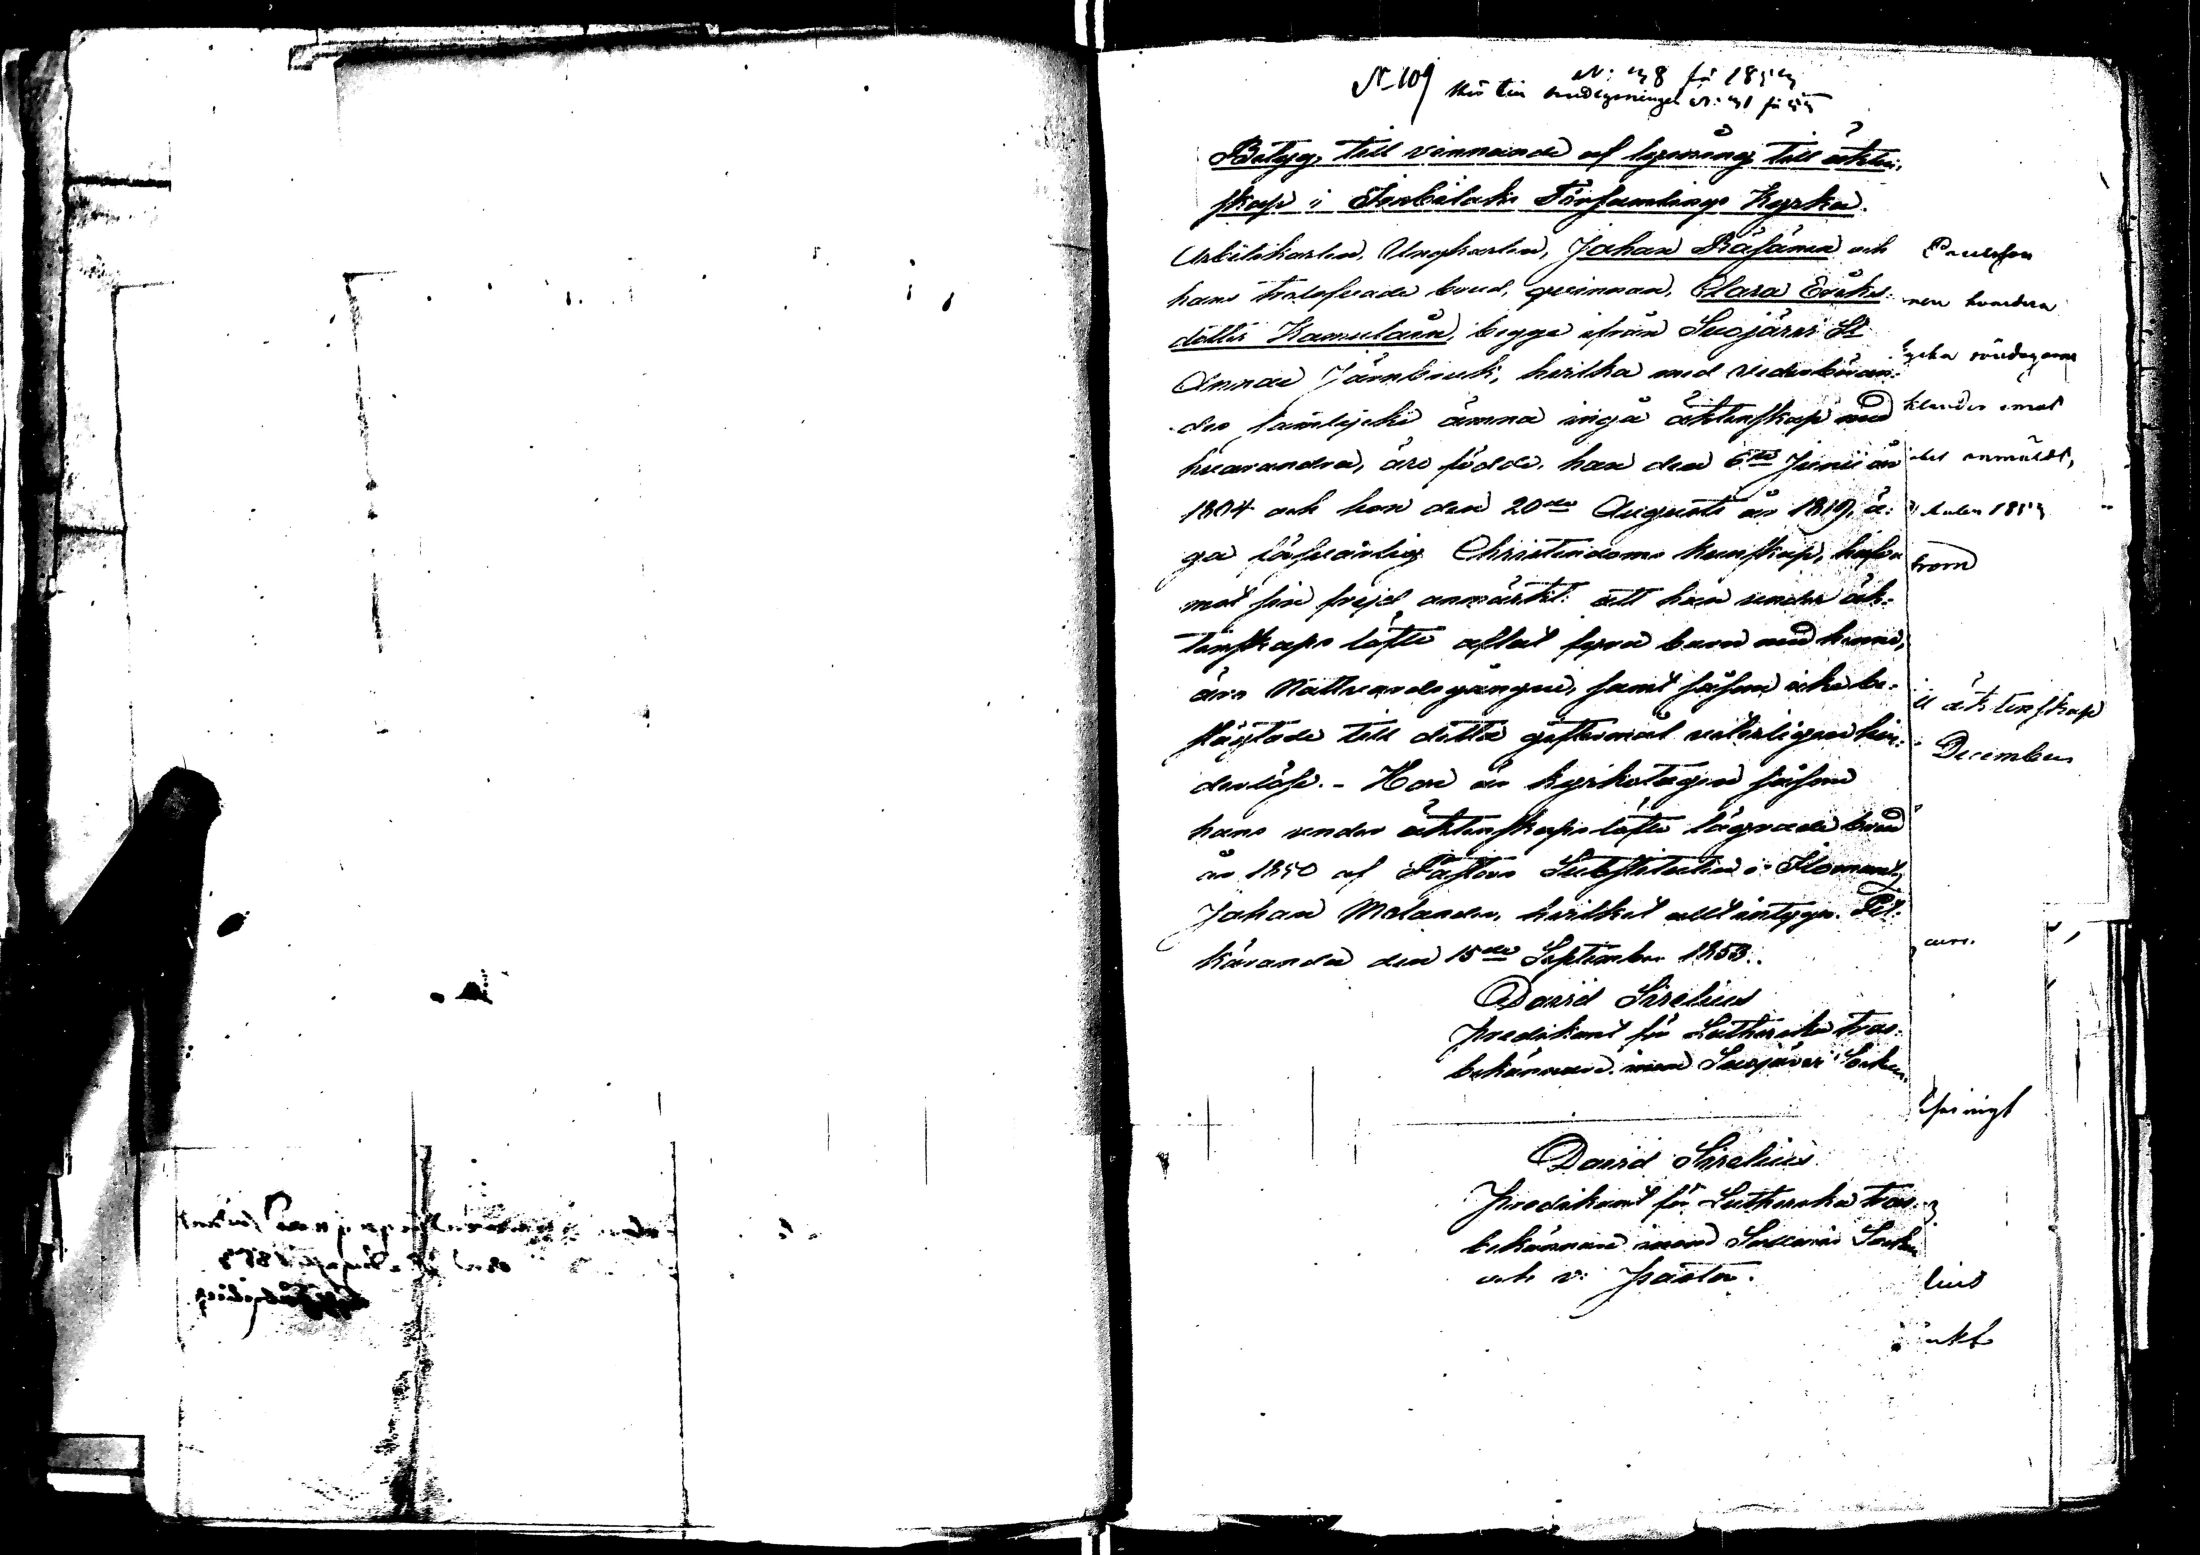 N 109
N: 38 för 1853
Hör till
Betyg, till vinnande af lysning till äkten,
skap i Imbilaks Församlings Kyrka.
Arbetskarlen, Ungkarlen, Johan Räsänen och
hans trolofvade brud, qvinnan, Clara Eriks
dotter Kamulain, begge ifrån Suojärvi St
Annae Järnbruk, hvilka med vederböran:
des samtycke ämna ingå äktenskap med
hvarandra, äro födde, han den 6te Junii år
1804 och hon den 20de Augusti år 1819, ä:
ga försvarlig Christendoms kunskap, hafva
mot sin frejd anmärkt: att han under äk:
tenskaps löfte aflat fyra barn med henne,
äro Nattvardsgångne, samt såsom icke be:
slägtade till detta giftermål veterligen hin:
derlöse. - Hon är kyrkotagen såsom
hans under äktenskaps löfte lägrade brud
år 1850 af Pastors Substituten i Ilomants
Johan Molander, hvilket allt intygar. Pit:
käranda den 15de September 1853.
David Sirelius
predikant för Lutherska tros:
bekännare inom Suojärvi Socken.
David Sirelius
predikant för Lutherska tros
bekännare inom Socken
och v: pastor.
Paulsson
hvardera
söndagarne
klander emot
det anmäldt,
1853
trom
ll äktenskap
December
lius